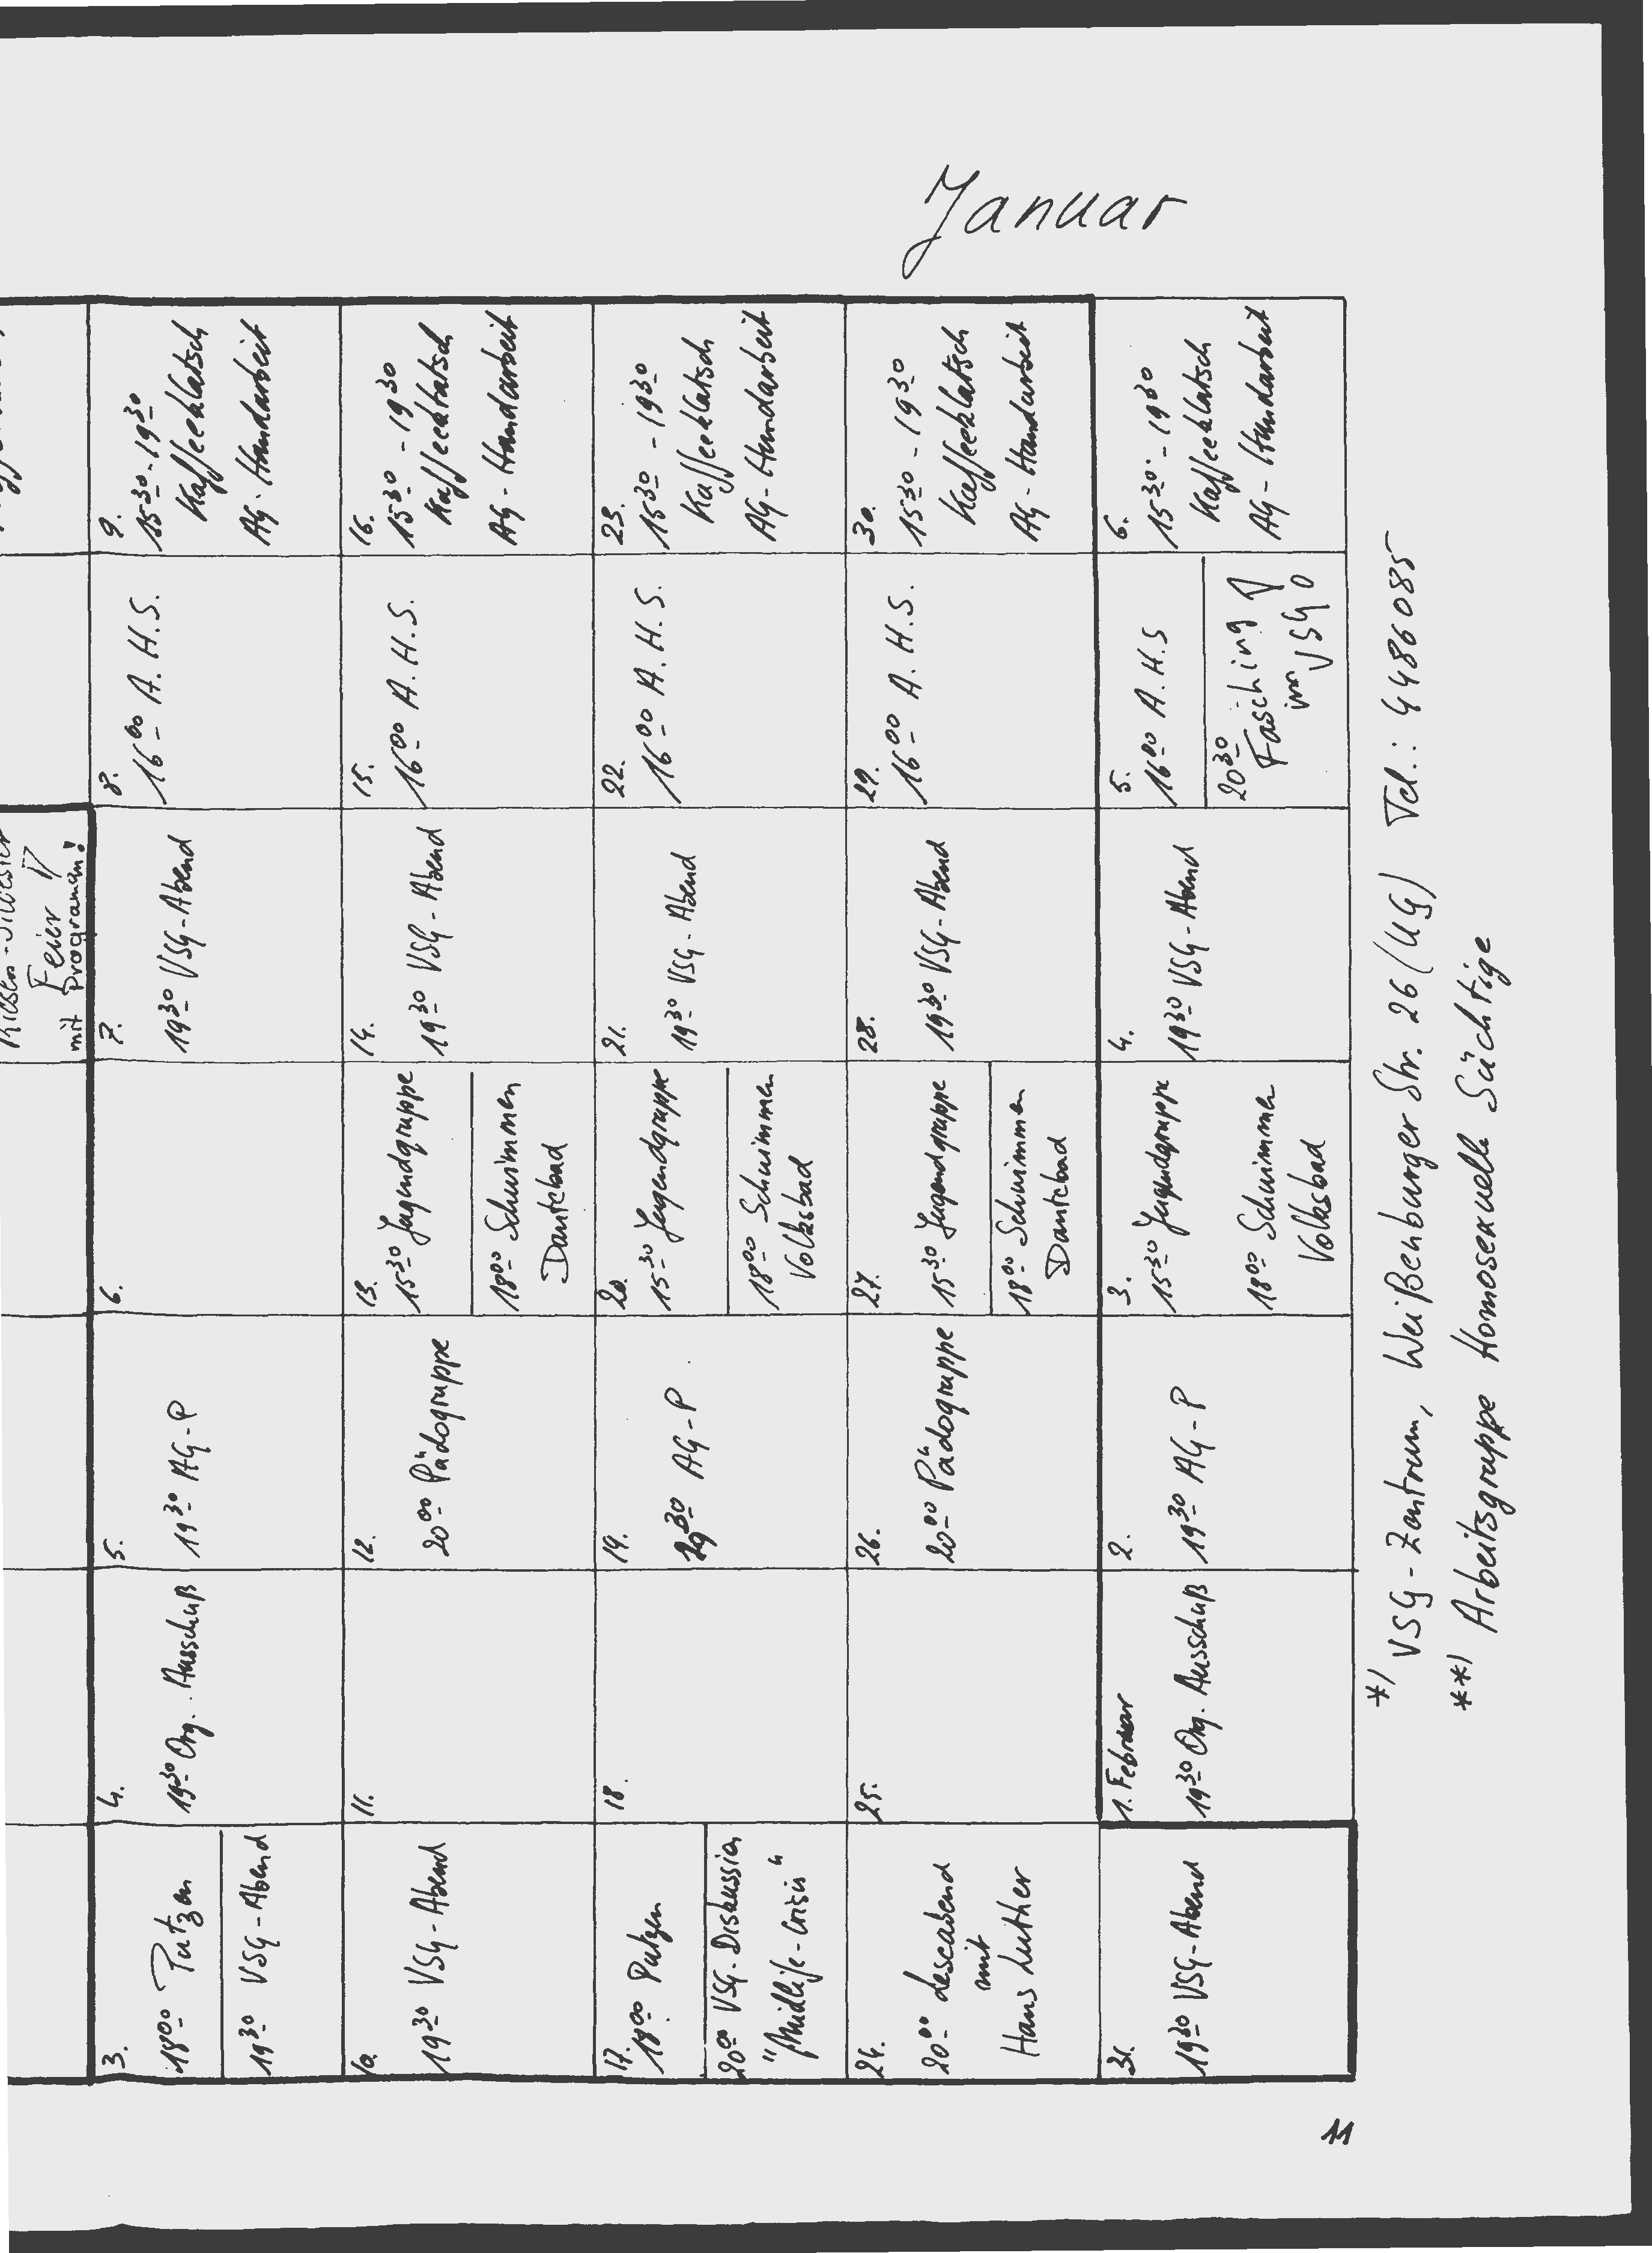 Januar
Feier
mit Programm!
3.
18⁰⁰ Putzen
19³⁰ VSG-Abend
4.
19³⁰ Org. Ausschuß
5.
19³⁰ AG-P
6.
7.
19³⁰ VSG-Abend
8.
16⁰⁰ A.H.S.
9.
15³⁰-19³⁰
Kaffeeklatsch
AG-Handarbeit
10.
19³⁰ VSG-Abend
11.
12.
20⁰⁰ Pädogruppe
13.
15³⁰ Jugendgruppe
18⁰⁰ Schwimmen
Dantebad
14.
19³⁰ VSG-Abend
15.
16⁰⁰ A.H.S.
16.
15³⁰-19³⁰
Kaffeeklatsch
AG-Handarbeit
17.
18⁰⁰ Putzen
20⁰⁰ VSG-Diskussion
"Midlife-Crisis"
18.
19.
19³⁰ AG-P
20.
15³⁰ Jugendgruppe
18⁰⁰ Schwimmen
Volksbad
21.
19³⁰ VSG-Abend
22.
16⁰⁰ A.H.S.
23.
15³⁰-19³⁰
Kaffeeklatsch
AG-Handarbeit
24.
20⁰⁰ Leseabend
mit
Hans Luther
25.
26.
20⁰⁰ Pädogruppe
27.
15³⁰ Jugendgruppe
18⁰⁰ Schwimmen
Dantebad
28.
19³⁰ VSG-Abend
29.
16⁰⁰ A.H.S.
30.
15³⁰-19³⁰
Kaffeeklatsch
AG-Handarbeit
31.
19³⁰ VSG-Abend
1. Februar
19³⁰ Org. Ausschuß
2.
19³⁰ AG-P
3.
15³⁰ Jugendgruppe
18⁰⁰ Schwimmen
Volksbad
4.
19³⁰ VSG-Abend
5.
16⁰⁰ A.H.S
20³⁰
Fasching!
im VSG
6.
15³⁰-19³⁰
Kaffeeklatsch
AG-Handarbeit
*) VSG-Zentrum, Weißenburger Str. 26 (UG) Tel.: 4486085
**) Arbeitsgruppe Homosexuelle Süchtige
11